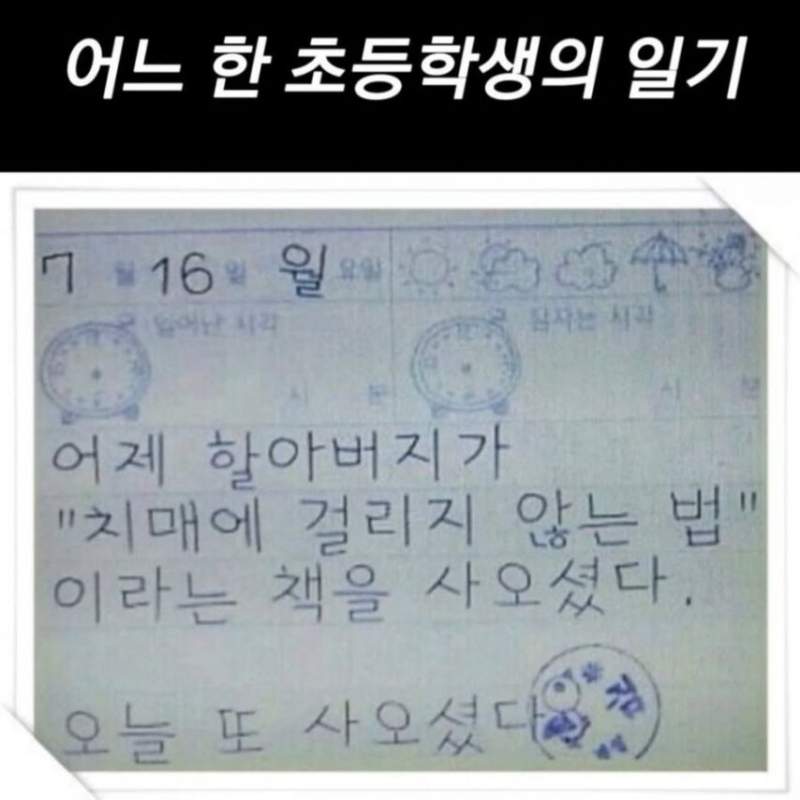 어느 한 초등학생의 일기
7 월 16 일 월 요일
일어난 시각
잠자는 시각
시 분
시 분
어제 할아버지가
"치매에 걸리지 않는 법"
이라는 책을 사오셨다.
오늘 또 사오셨다